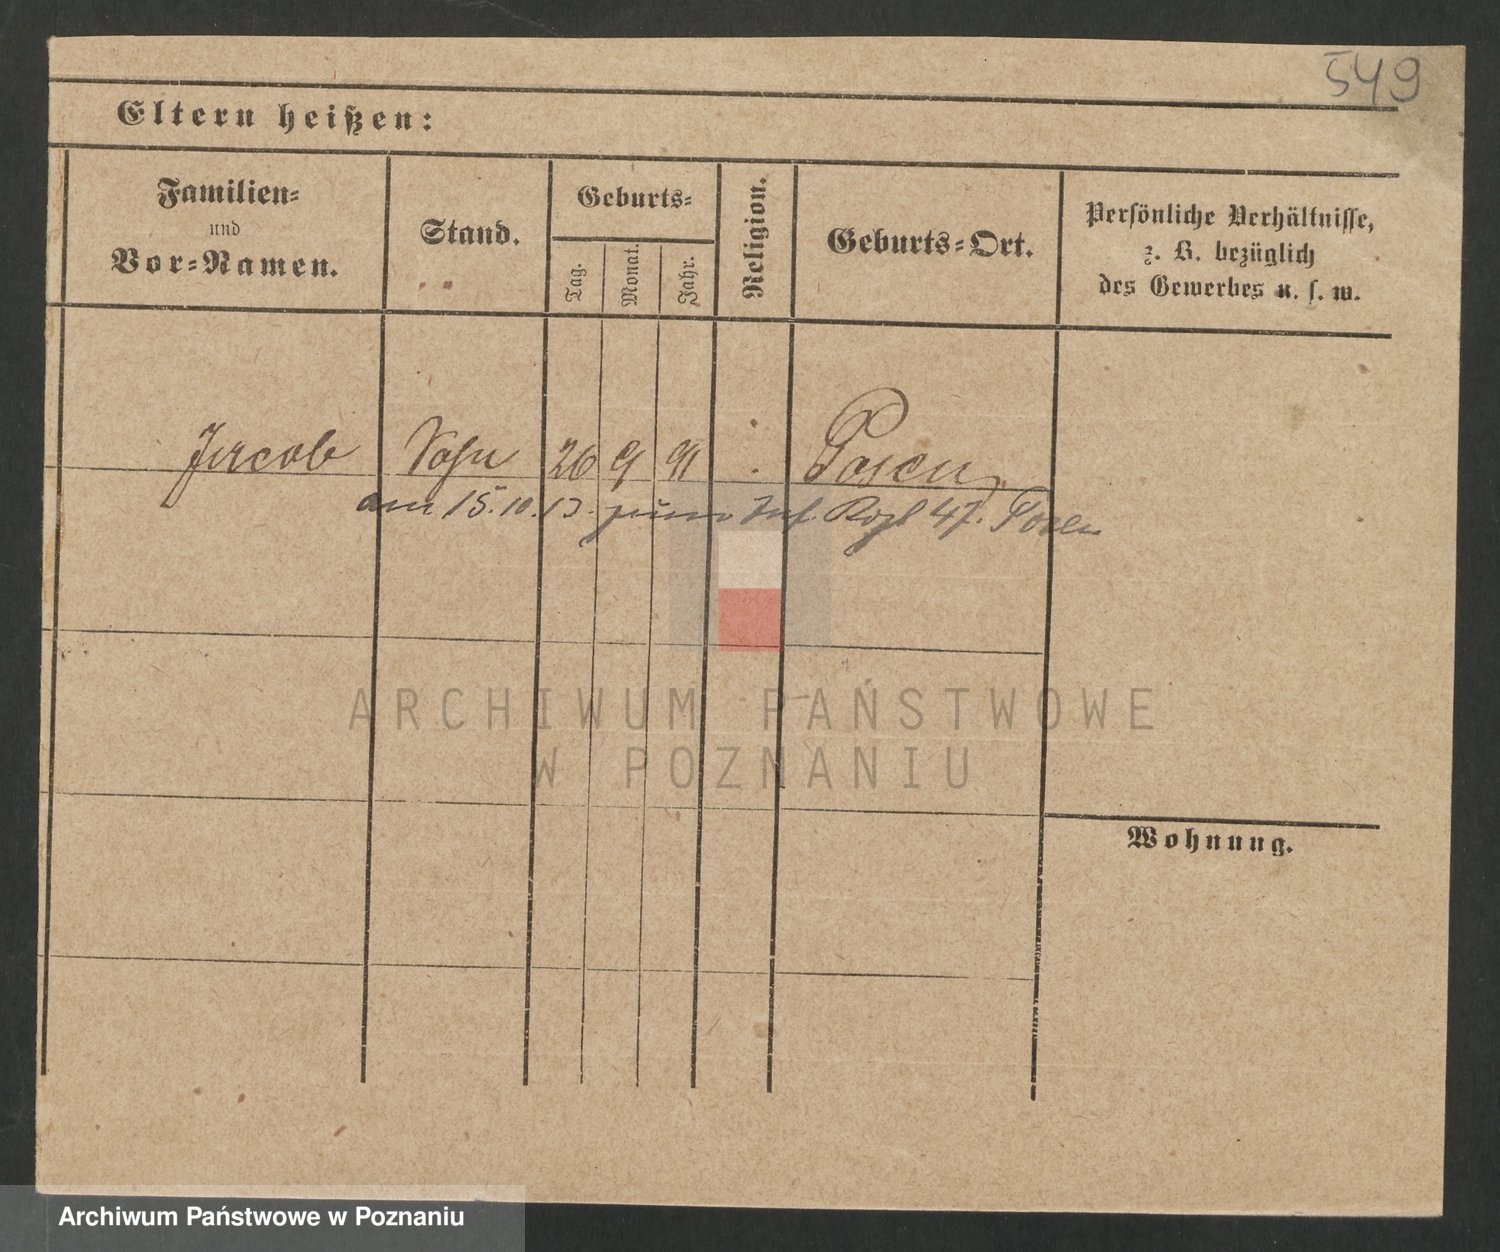 549
Eltern heißen:
Familien-
und
Vor-Namen.
Stand.
Geburts-
Tag.
Monat.
Jahr.
Religion.
Geburts-Ort.
Persönliche Verhältnisse,
z. B. bezüglich
des Gewerbes u. s. w.
Jacob Sohn 26 9 91 Posen
am 15.10.13. zum Inf. Regt 47. Posen
ARCHIWUM PAŃSTWOWE
W POZNANIU
Wohnung.
Archiwum Państwowe w Poznaniu